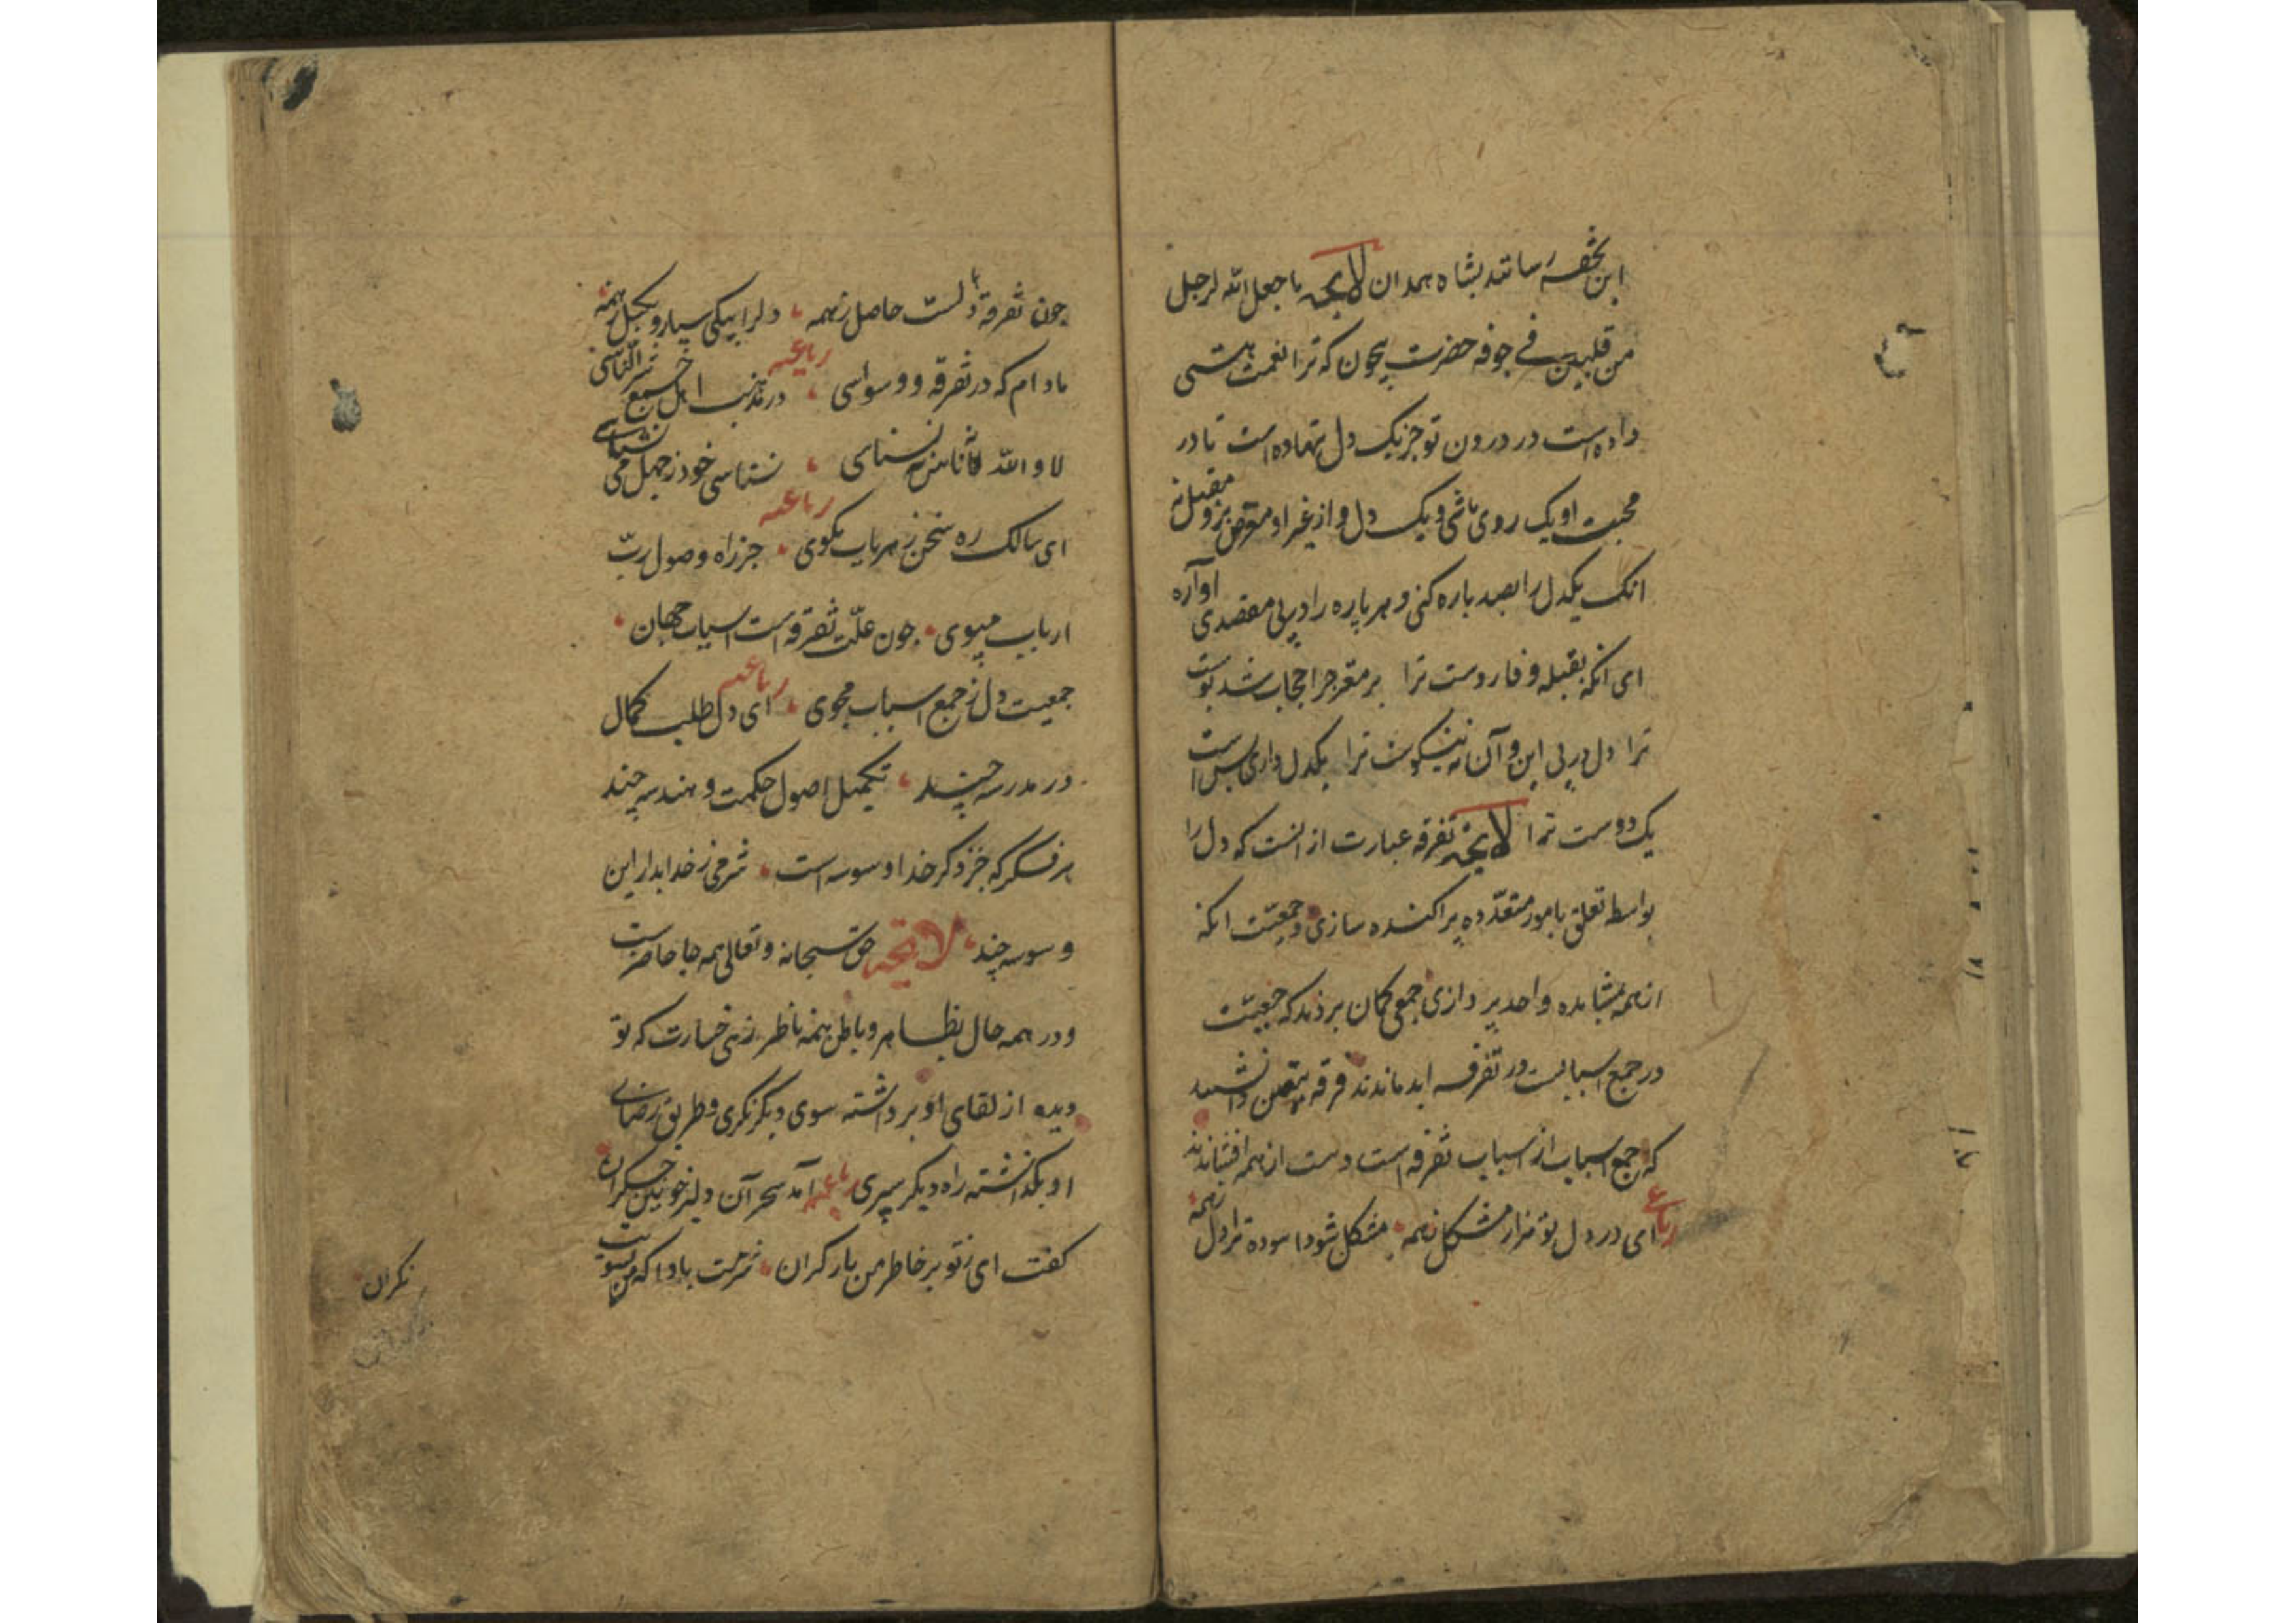 این تحفه رسانند بشاه همدان لایحه ما جعل الله لرجل
من قلبین فی جوفه حضرت بیچون که ترا نعمت هستی
داده است در درون تو جز یک دل ننهاده است تا در
محبت او یک روی باشی و یک دل و از غیر او معرض و برو مقبل نه
انک یکدل را بصد باره کنی و هر پاره را در پی مقصدی اواره
ای انکه بقبله وفا روست ترا بر مغز چرا حجاب شد پوست
ترا دل در پی این و آن نه نیکوست ترا یکدل داری بس است
یک دوست ترا لایحه تفرقه عبارت از انست که دل را
بواسطه تعلق بامور متعدده پراکنده سازی و جمعیت انکه
از همه بمشاهده واحد پردازی جمعی کمان بردند که جمعیت
در جمع اسبابست در تفرقه ابد ماندند فرقه بیقین دانستند
که جمع اسباب از اسباب تفرقه است دست از همه افشاندند
رباعی ای در دل تو هزار مشکل ز همه مشکل شود اسوده ترا دل ز همه
چون تفرقه دلست حاصل ز همه دلرا بیکی سپار و بکسل ز همه
رباعیه
مادام که در تفرقه و وسواسی در مذهب اهل جمع شر الناسی
لا والله لا ناس نه نسناسی نسناسی خود ز جهل می نشناسی
رباعیه
ای سالک ره سخن ز هر باب مکوی جز راه وصول رب
ارباب مپوی چون علت تفرقه است اسباب جهان
جمعیت دل ز جمع اسباب مجوی رباعیه ای دل طلب کمال
در مدرسه چند تکمیل اصول حکمت و هندسه چند
هر فکر که جز ذکر خدا وسوسه است شرمی ز خدا بدار این
وسوسه چند لایحه حق سبحانه و تعالی همه جا حاضرست
و در همه حال بظاهر و باطن همه ناظر زهی خسارت که تو
دیده از لقای او برداشته سوی دیکر نکری و طریق رضای
او بکذاشته راه دیکر سپری رباعیه آمد سحر آن دلبر خونین جکران
کفت ای ز تو بر خاطر من بار کران شرمت بادا که من بسویت
نکران